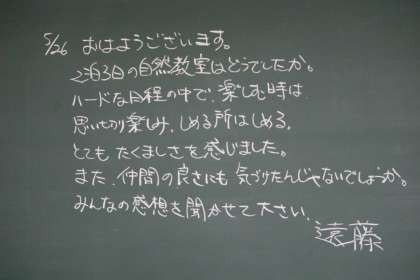 5/26 おはようございます。
2泊3日の自然教室はどうでしたか。
ハードな日程の中で、楽しむ時は
思いきり楽しみ、しめる所はしめる。
とても たくましさを感じました。
また、仲間の良さにも 気づけたんじゃないでしょうか。
みんなの感想を聞かせて下さい。
遠藤